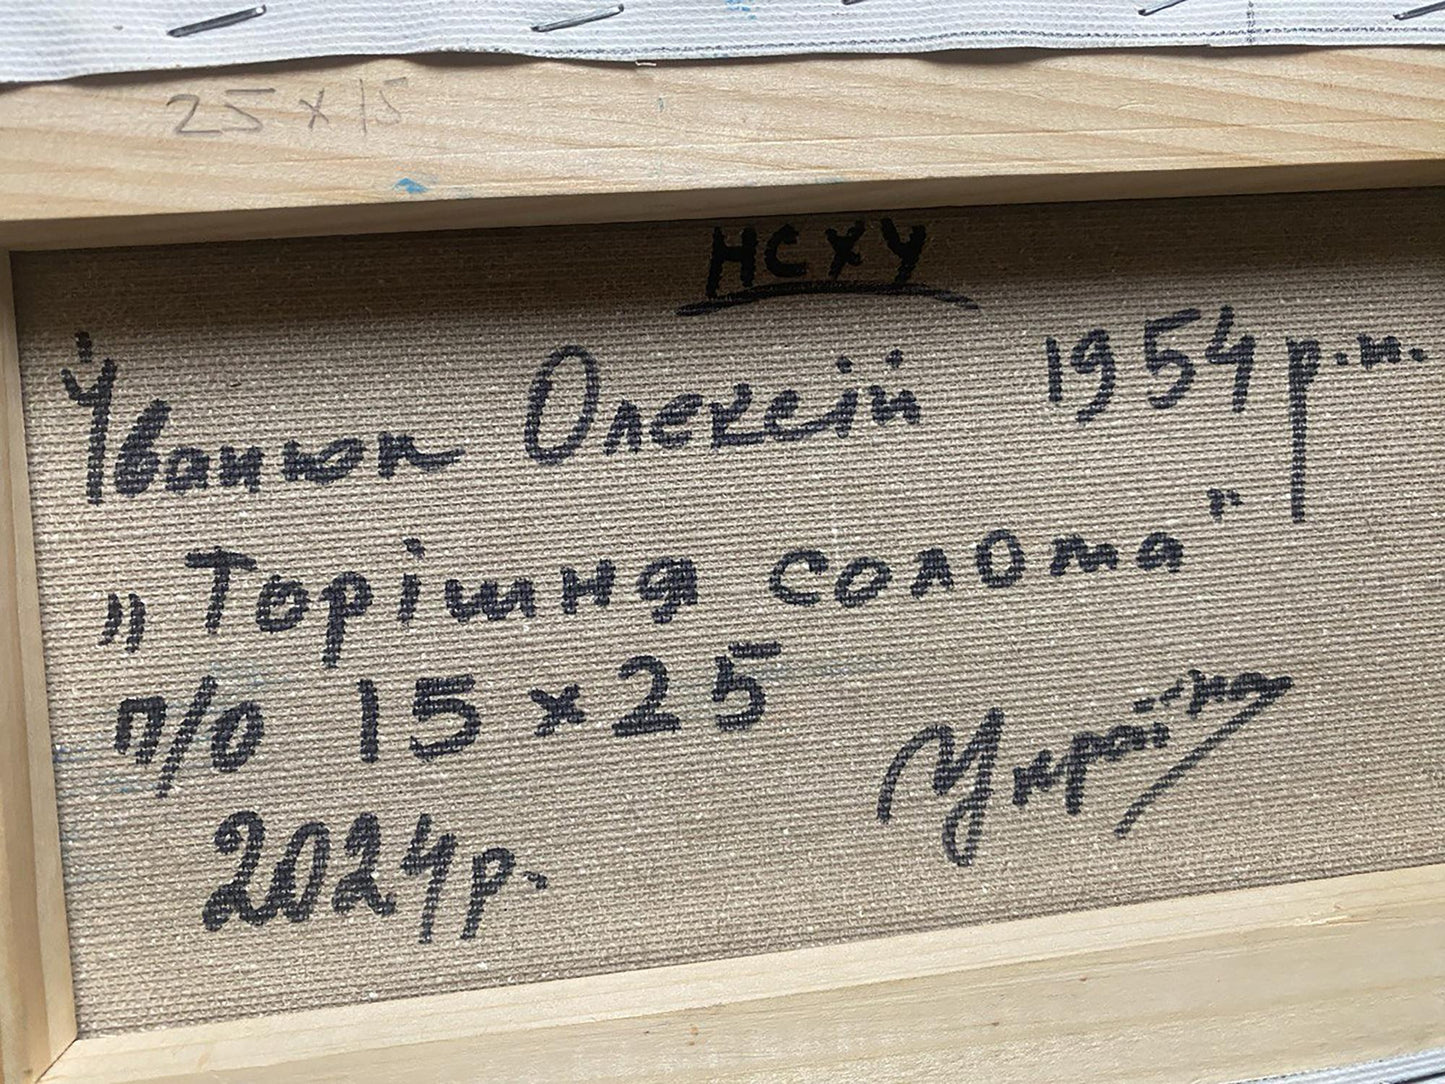 25 x 15
НСХУ
Іванюк Олексій 1954 р.н.
„Торішня солома"
п/о 15 x 25
Україна
2024р.